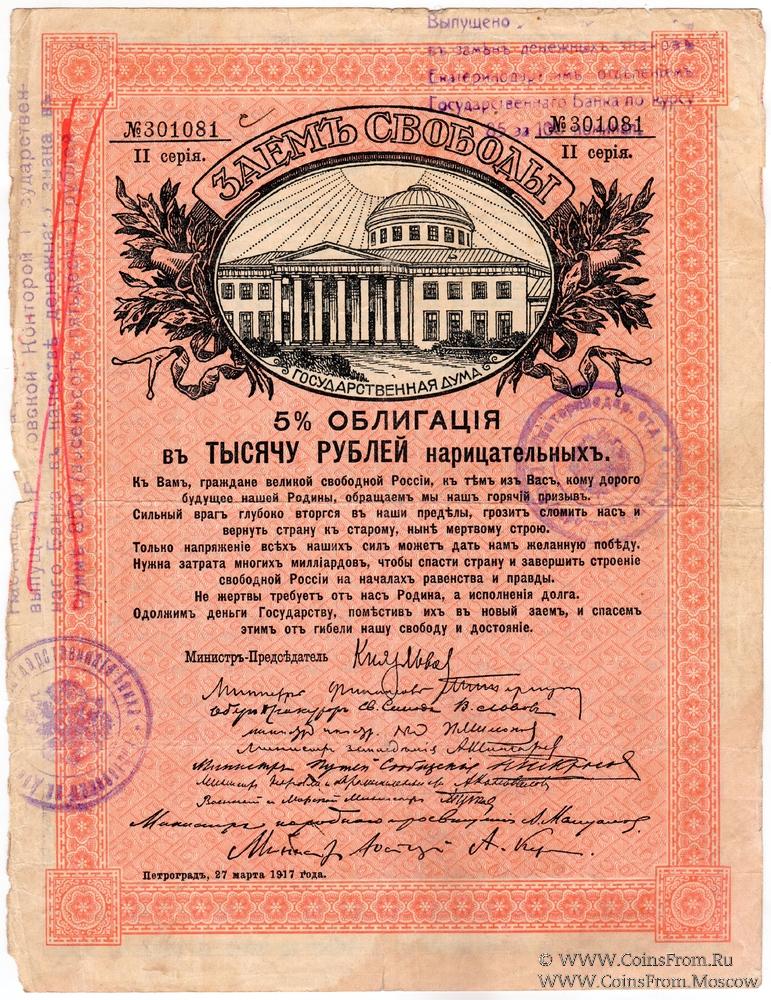 Выпущено
въ замѣнъ денежныхъ знаковъ
Екатеринодарскимъ отдѣленiемъ
Государственнаго Банка по курсу
85 за 100
№301081
№301081
II серія.
II серія.
ЗАЕМЪ СВОБОДЫ
ГОСУДАРСТВЕННАЯ ДУМА
5% ОБЛИГАЦІЯ
въ ТЫСЯЧУ РУБЛЕЙ нарицательныхъ.
Къ Вамъ, граждане великой свободной Россіи, къ тѣмъ изъ Васъ, кому дорого
будущее нашей Родины, обращаемъ мы нашъ горячій призывъ.
Сильный врагъ глубоко вторгся въ наши предѣлы, грозитъ сломить насъ и
вернуть страну къ старому, нынѣ мертвому строю.
Только напряженіе всѣхъ нашихъ силъ можетъ дать намъ желанную побѣду.
Нужна затрата многихъ милліардовъ, чтобы спасти страну и завершить строеніе
свободной Россіи на началахъ равенства и правды.
Не жертвы требуетъ отъ насъ Родина, а исполненія долга.
Одолжимъ деньги Государству, помѣстивъ ихъ въ новый заемъ, и спасемъ
этимъ отъ гибели нашу свободу и достояніе.
Министръ-Предсѣдатель Князь Львов
Министръ Финансовъ
Оберъ Прокуроръ Св. Синода В. Львовъ
Министръ земледѣлія А. Шингарев
Министръ Путей Сообщенія Н. Некрасов
Военный и Морской Министръ Гучков
Министръ народнаго просвѣщенія А. Мануилов
Министр Юстиціи А. Кер
Петроградъ, 27 марта 1917 года.
выпущена Конторой Государствен-
наго Банка въ качествѣ денежнаго знака въ
суммѣ 850 (восемьсотъ пятьдесятъ) рублей
Екатеринодар. отд.
© WWW.CoinsFrom.Ru
WWW.CoinsFrom.Moscow